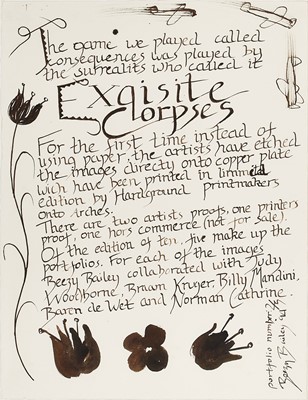 The game we played called
consequences was played by
the surrealits who called it
Exqisite
Corpses
For the first time instead of
using paper, the artists have etched
the images directly onto copper plate
wich have been printed in limmited
edition by Hardground printmakers
onto Arches.
There are two artists proofs, one printers
proof, one hors commerce (not for sale).
Of the edition of ten, five make up the
portfolios. For each of the images
Beezy Bailey collaborated with Judy
Woolborne, Braam Kruger, Billy Mandini,
Baren de Wet and Norman Cathrine.
portfolio number
Beezy Bailey